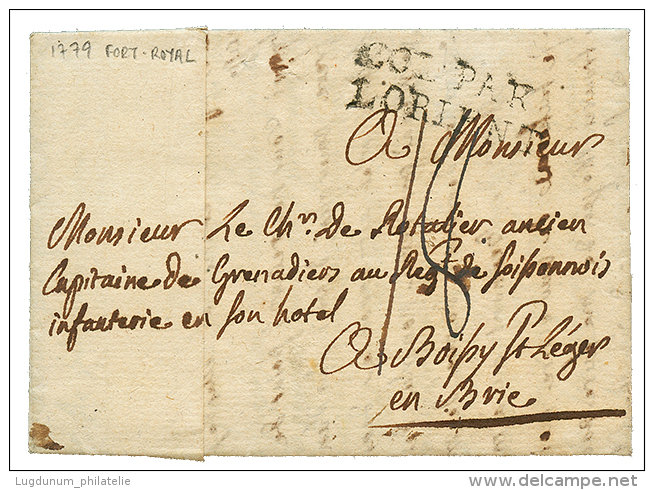 1779 FORT-ROYAL
COL PAR
LORIENT
A Monsieur
Monsieur Le Chr. de Rotalier ancien
Capitaine de Grenadiers au Regt de Soissonnois
infanterie en son hotel
A Boissy St Léger
en Brie
Lugdunum_philatelie
delcampe.net